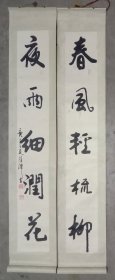 春風輕梳柳
夜雨細潤花